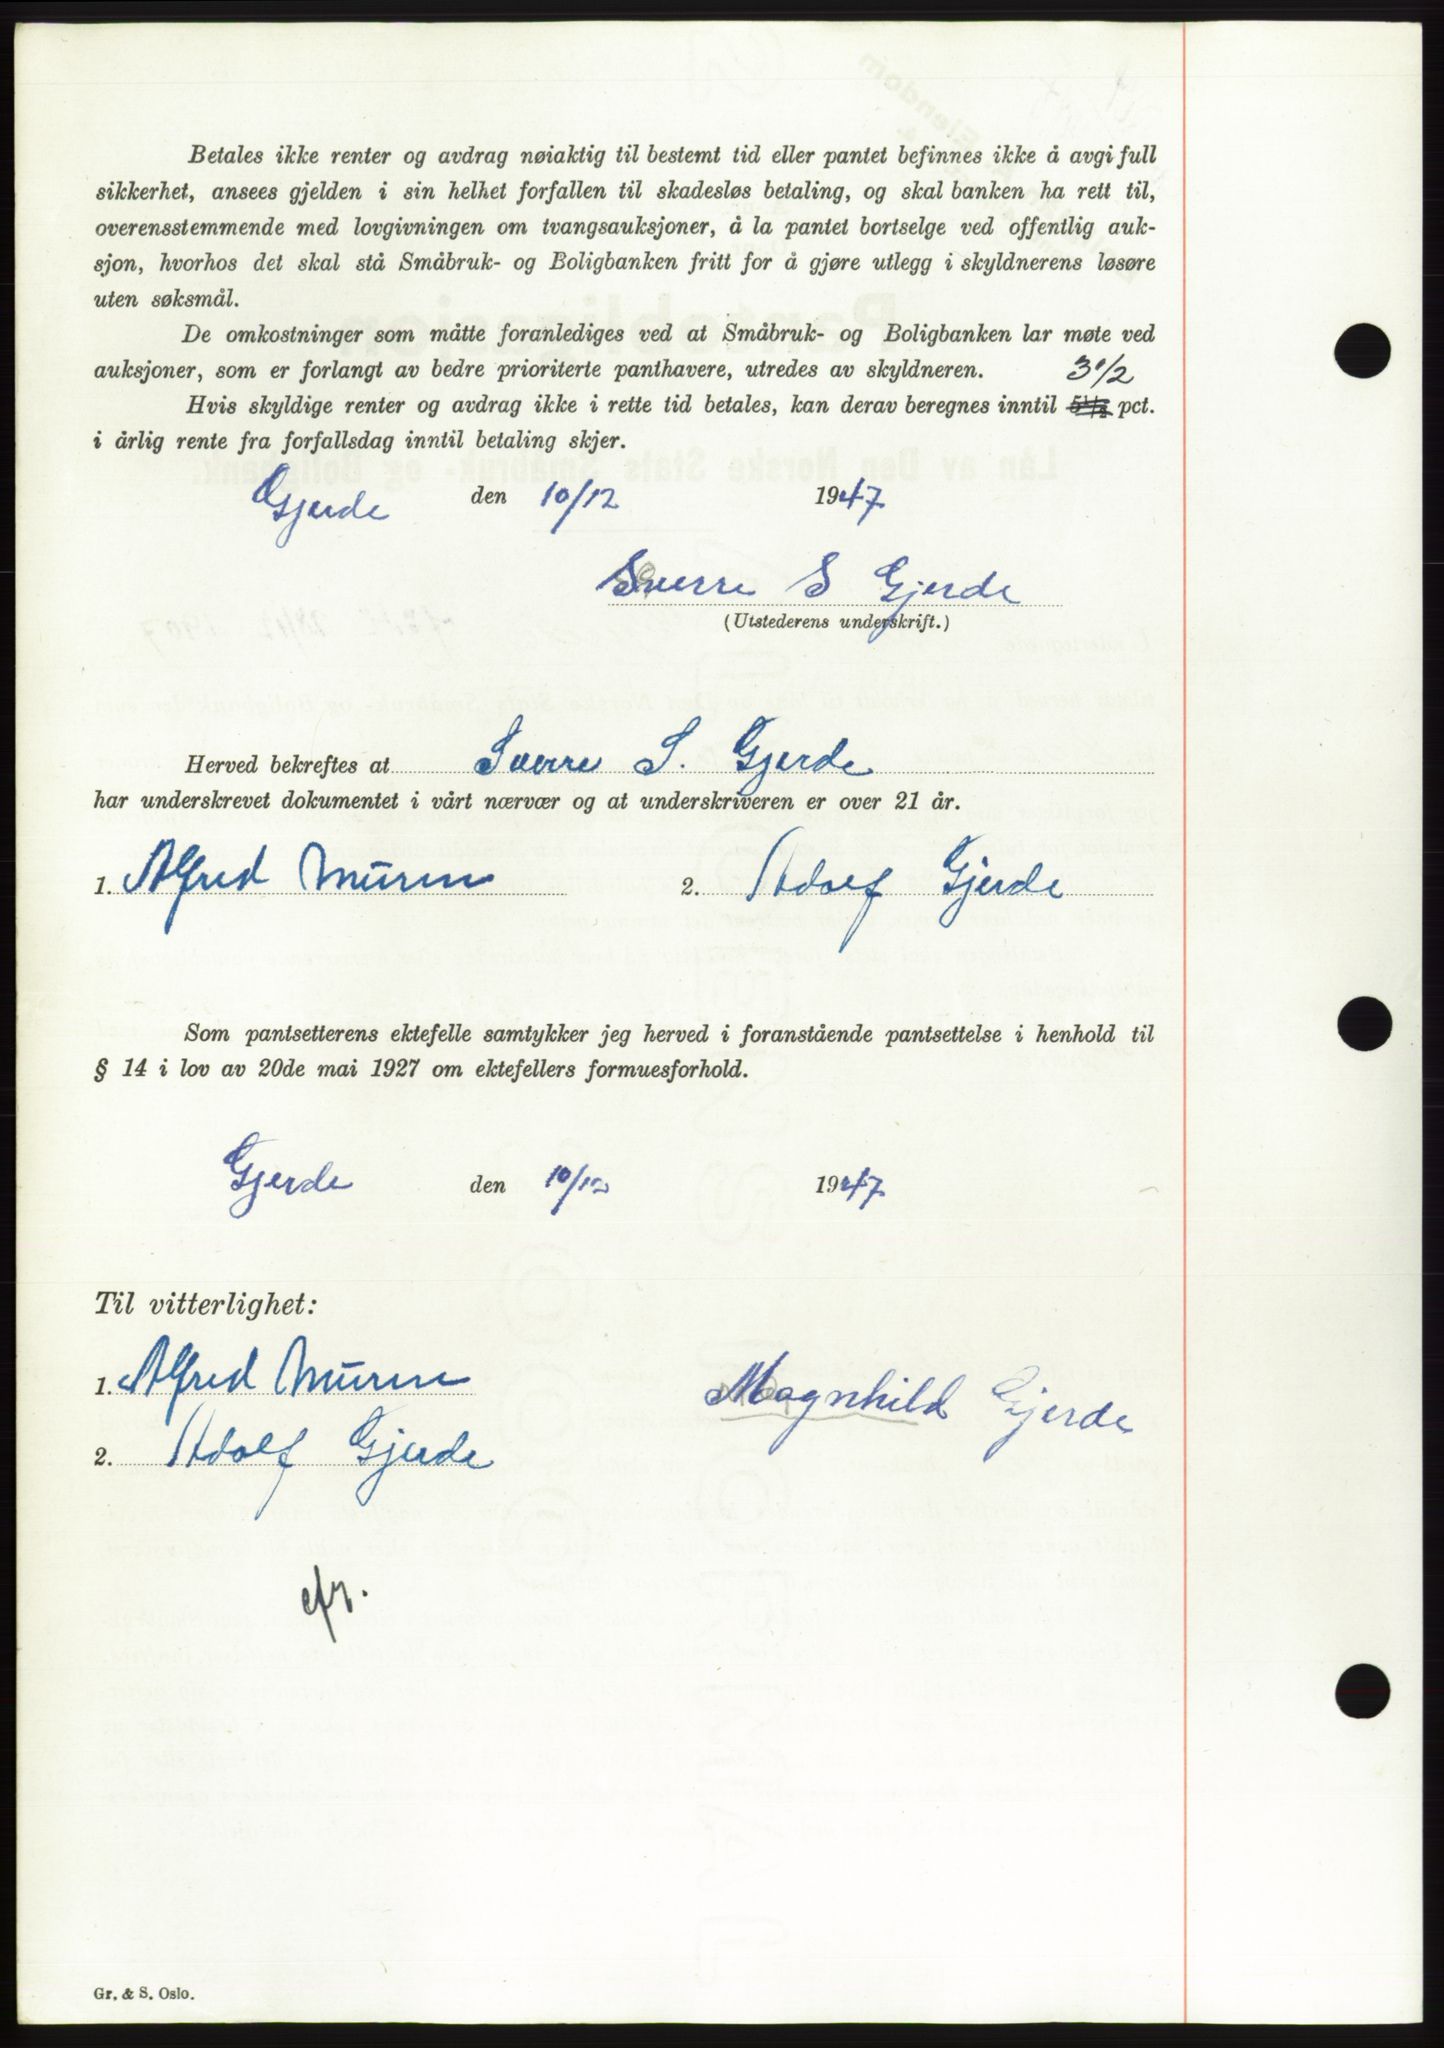 Betales ikke renter og avdrag nøiaktig til bestemt tid eller pantet befinnes ikke å avgi full
sikkerhet, ansees gjelden i sin helhet forfallen til skadesløs betaling, og skal banken ha rett til,
overensstemmende med lovgivningen om tvangsauksjoner, å la pantet bortselge ved offentlig auk-
sjon, hvorhos det skal stå Småbruk- og Boligbanken fritt for å gjøre utlegg i skyldnerens løsøre
uten søksmål.
De omkostninger som måtte foranlediges ved at Småbruk- og Boligbanken lar møte ved
auksjoner, som er forlangt av bedre prioriterte panthavere, utredes av skyldneren. 3 1/2
Hvis skyldige renter og avdrag ikke i rette tid betales, kan derav beregnes inntil 5 1/2 pct.
i årlig rente fra forfallsdag inntil betaling skjer.
Gjerde den 10/12 1947
Sverre S Gjerde
(Utstederens underskrift.)
Herved bekreftes at Sverre S. Gjerde
har underskrevet dokumentet i vårt nærvær og at underskriveren er over 21 år.
1. Alfred Muren 2. Adolf Gjerde
Som pantsetterens ektefelle samtykker jeg herved i foranstående pantsettelse i henhold til
§ 14 i lov av 20de mai 1927 om ektefellers formuesforhold.
Gjerde den 10/12 1947
Til vitterlighet:
1. Alfred Muren
Magnhild Gjerde
2. Adolf Gjerde
Gr. & S. Oslo.